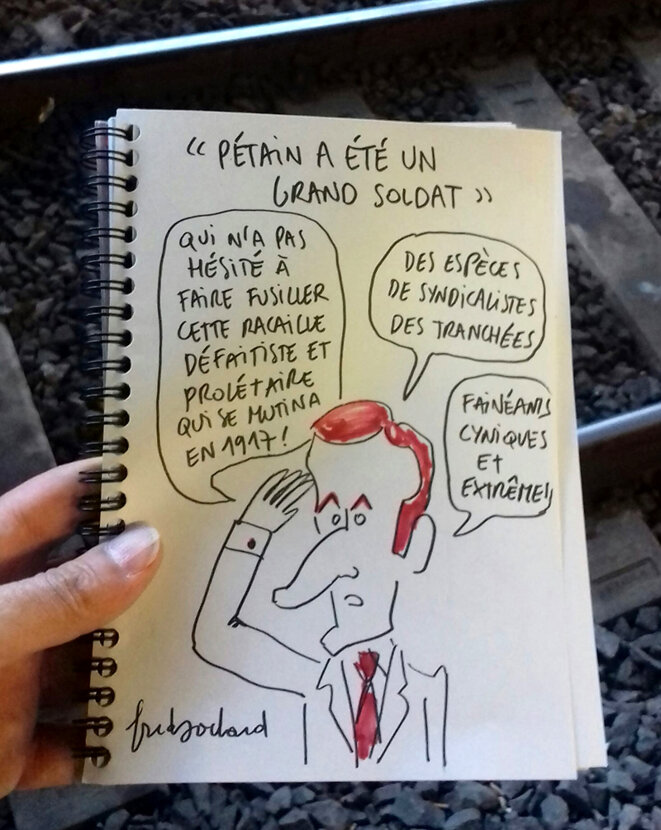 « PÉTAIN A ÉTÉ UN
GRAND SOLDAT »
QUI N'A PAS
HÉSITÉ À
FAIRE FUSILLER
CETTE RACAILLE
DÉFAITISTE ET
PROLÉTAIRE
QUI SE MUTINA
EN 1917 !
DES ESPÈCES
DE SYNDICALISTES
DES TRANCHÉES
FAINÉANTS
CYNIQUES
ET
EXTRÊME!!
fredsochard